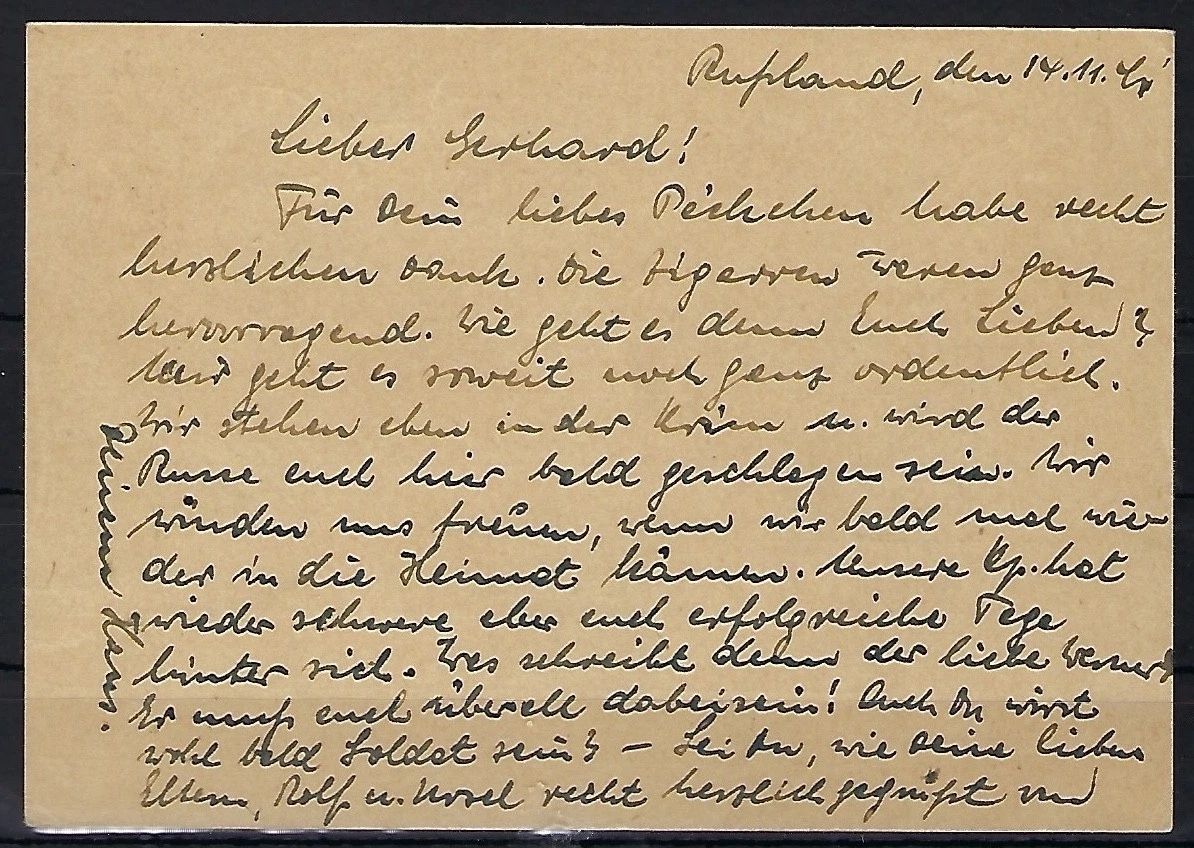 Rußland, den 14.11.41
Lieber Gerhard!
Für Dein liebes Päckchen habe recht
herzlichen Dank. Die Zigarren waren ganz
hervorragend. Wie geht es denn Euch Lieben?
Mir geht es soweit noch ganz ordentlich.
Wir stehen eben in der Krim u. wird der
Russe auch hier bald geschlagen sein. Wir
würden uns freuen, wenn wir bald mal wie-
der in die Heimat kämen. Unsere Kp. hat
wieder schwere aber auch erfolgreiche Tage
hinter sich. Was schreibt denn der liebe Werner?
Er muß auch überall dabeisein! Auch Du wirst
wohl bald Soldat sein? – Sei Du, wie Deine lieben
Eltern, Rolf u. Ursel recht herzlich gegrüßt von
Deinem Hans.